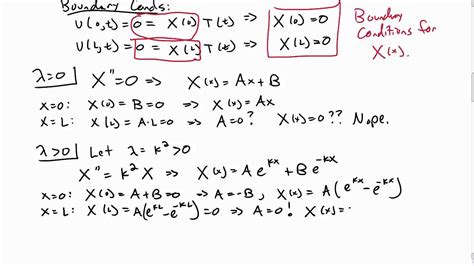 Boundary Conds:
u(0,t) = 0 = X(0) T(t) => X(0)=0
u(L,t) = 0 = X(L) T(t) => X(L)=0
Boundary
Conditions for
X(x).
λ=0 X''=0 => X(x) = Ax + B
x=0: X(0) = B = 0 => X(x) = Ax
x=L: X(L) = A·L = 0 => X(x) = 0?? Nope.
λ>0 Let λ = k²>0
X'' = k² X => X(x) = A e^{kx} + B e^{-kx}
x=0: X(0) = A+B=0 => A=-B, X(x) = A(e^{kx} - e^{-kx})
x=L: X(L) = A(e^{kL} - e^{-kL}) = 0 => A=0! X(x) =